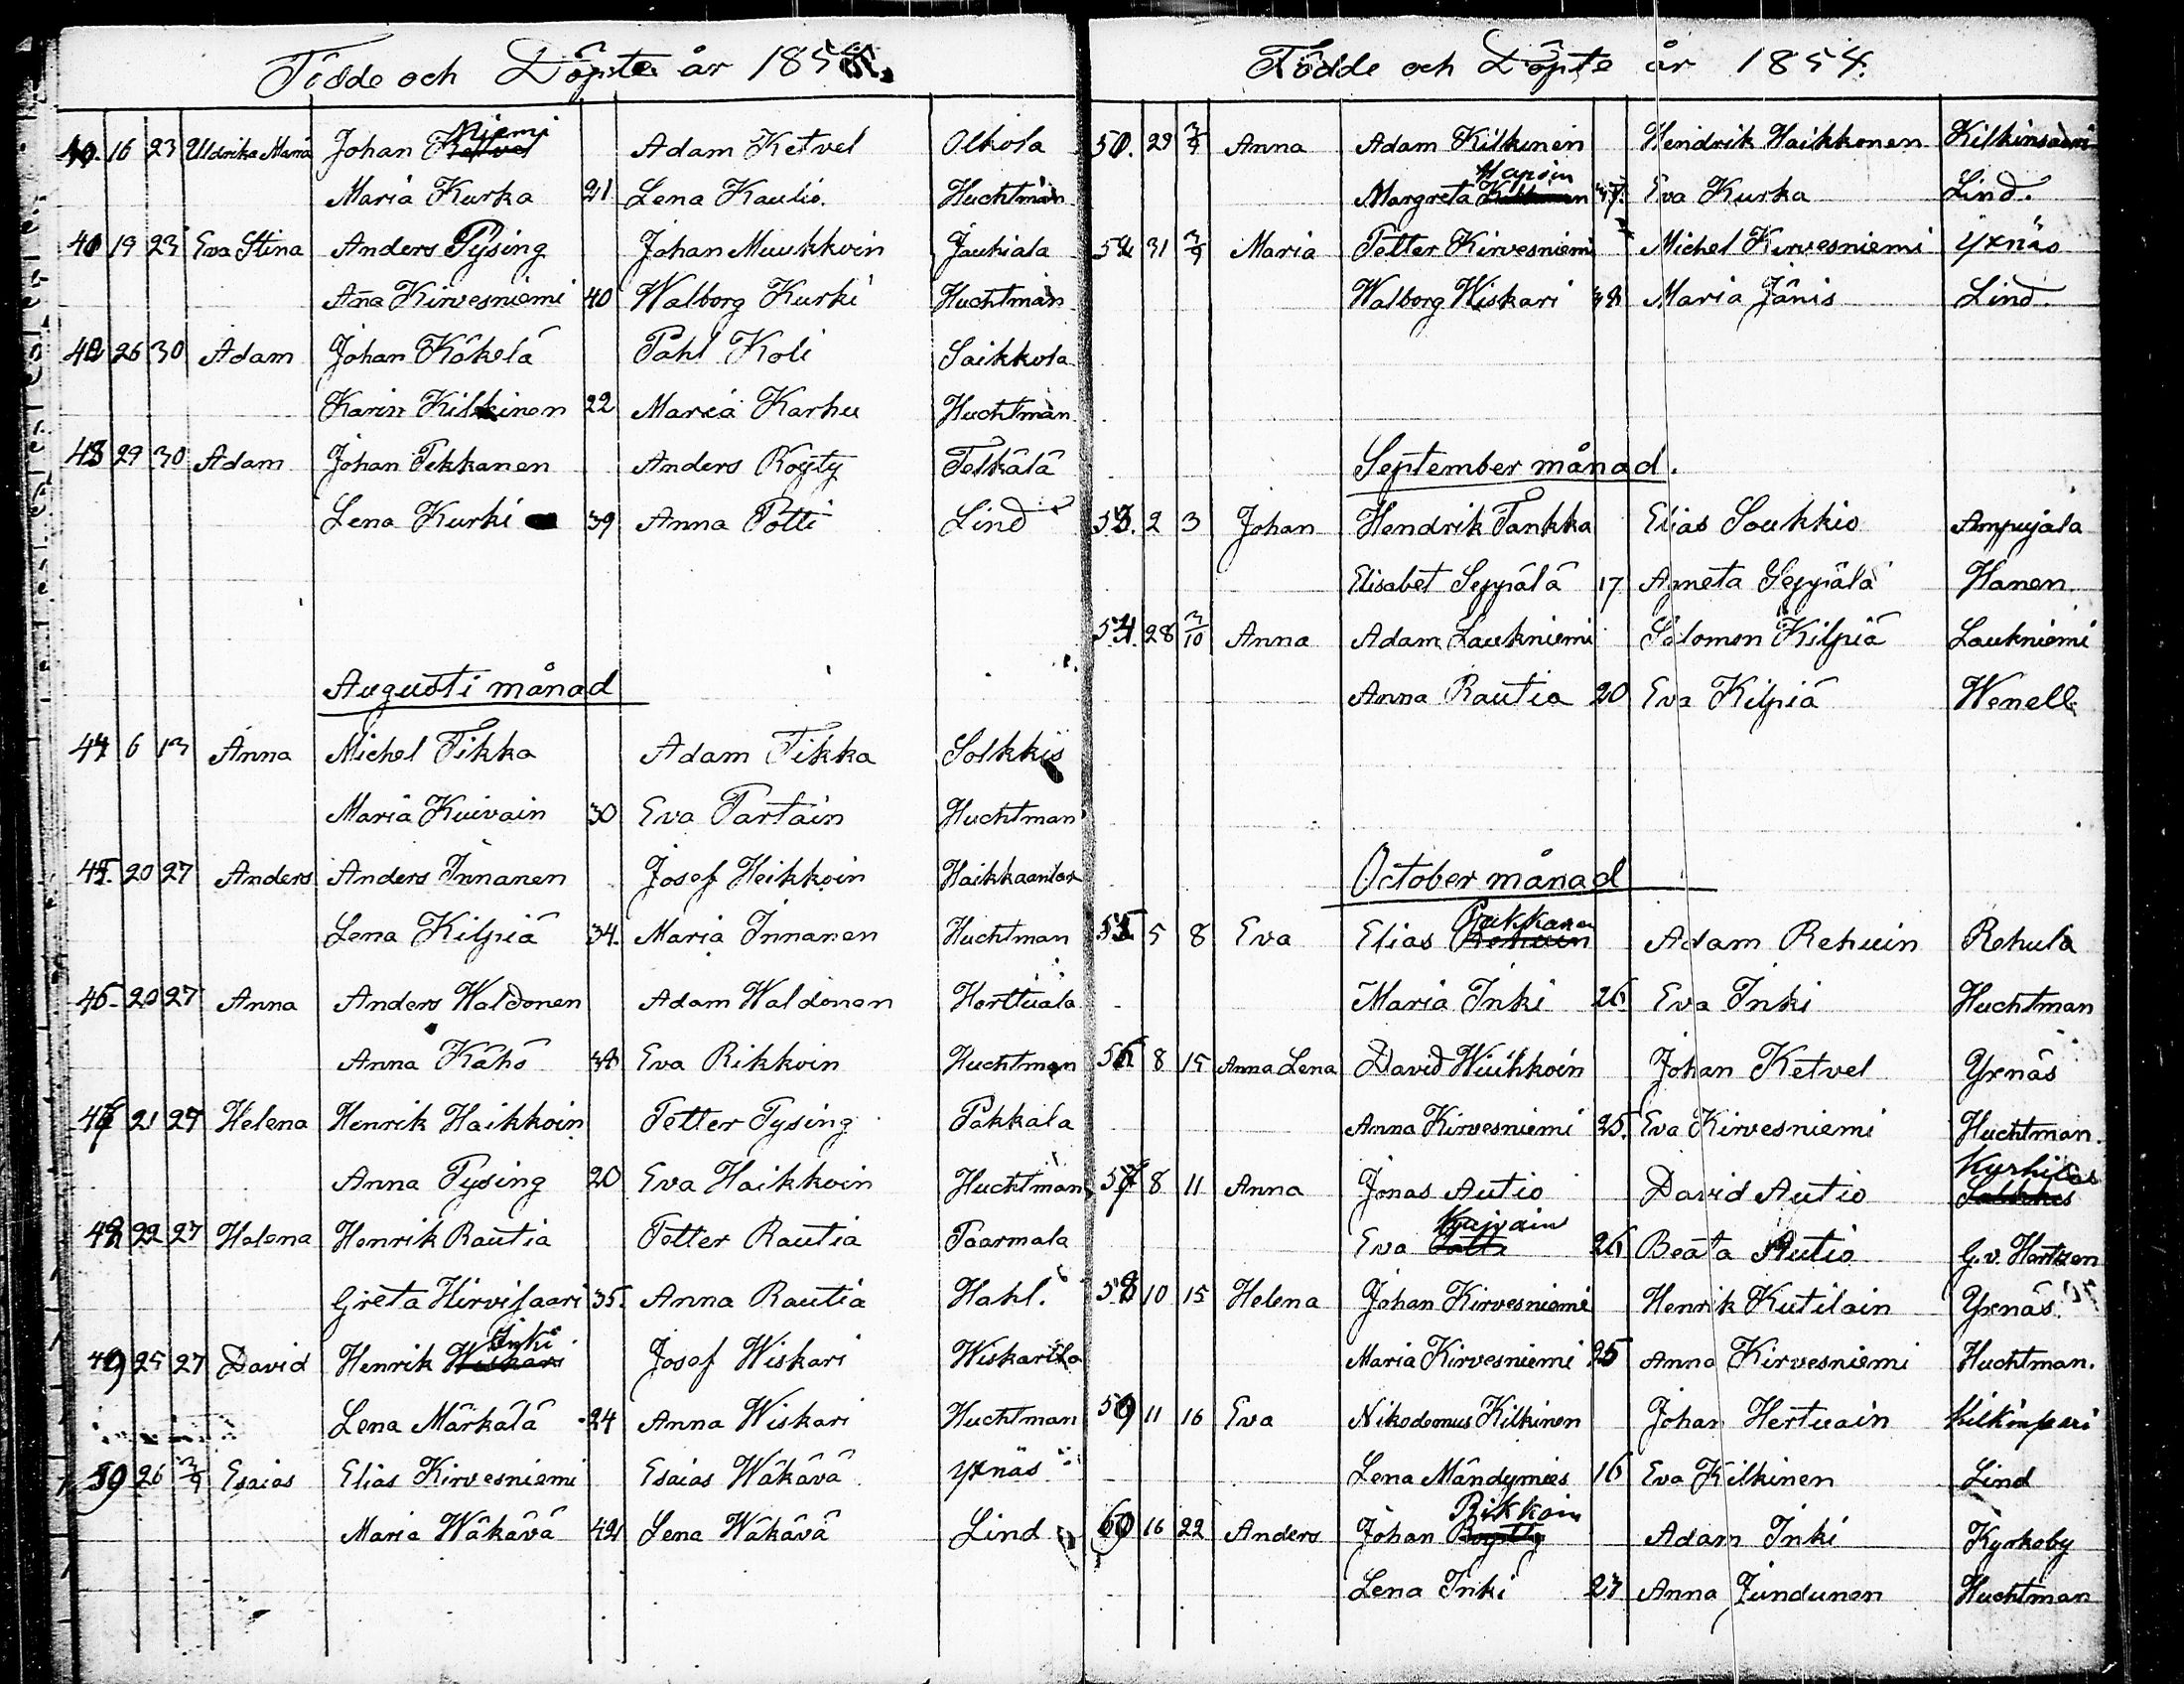 Födde och Döpte år 185
Niemi
40. 16 23 Uldrika Maria Johan Ketvel Adam Ketvel Olkola
Maria Kurka 21 Lena Kaulio. Huchtman
40 19 23 Eva Stina Anders Pysing Johan Muukkoin Jauhiala
Anna Kirvesniemi 40 Walborg Kurki Huchtman
42 26 30 Adam Johan Käkelä Påhl Koli Saikkola
Karin Kilkinen 22 Maria Karhu Huchtman
43 29 30 Adam Johan Pekkanen Anders Röyty Telkälä
Lena Kurki 39 Anna Potti Lind
Augusti månad
44 6 13 Anna Michel Tikka Adam Tikka Solkkis
Maria Kuivain 30 Eva Partain Huchtman
45. 20 27 Anders Anders Innanen Josef Heikkoin
Lena Kilpiä 34. Maria Innanen Huchtman
46. 20 27 Anna Anders Waldonen Adam Waldonen Herttuala
Anna Kähö Eva Rikkoin Huchtman
47 21 27 Helena Henrik Haikkoin Petter Pysing Pakkala
Anna Pysing 20 Eva Haikkoin Huchtman
48 22 27 Helena Henrik Rautia Petter Rautia Paarmala
Greta Hirvisaari 35. Anna Rautia Hahl.
Inki
49 25 27 David Henrik Wiskari Josef Wiskari Wiskarila
Lena Märkälä 24 Anna Wiskari Huchtman
26 3/9 Esaias Elias Kirvesniemi Esaias Wäkävä Yxnäs
Maria Wäkävä 42 Lena Wäkävä Lind
Födde och Döpte år 1854.
50. 29 3/9 Anna Adam Kilkinen Hendrik Haikkonen Kilkinsaari
Hapoin
Margreta Eva Kurka Lind.
31 3/9 Maria Petter Kirvesniemi Michel Kirvesniemi Yxnäs
Walborg Wiskari 38 Maria Jänis Lind.
September månad.
53. 2 3 Johan Hendrik Tankka Elias Soukkio Ampujala
Elisabet Seppälä 17 Agneta Seppälä Hanen
54. 28 3/10 Anna Adam Laukniemi Salomon Kilpiä Laukniemi
Anna Rautia 20 Eva Kilpiä Wenell
October månad
Pukkanen
55 5 8 Eva Elias Rehuin Adam Rehuin Rehula
Maria Inki 26 Eva Inki Huchtman
56 8 15 Anna Lena David Wiuhkoin Johan Ketvel Yxnäs
Anna Kirvesniemi 25. Eva Kirvesniemi Huchtman.
Kyrhilä
57 8 11 Anna Jonas Autio David Autio Salkkis
Kujvain
Eva Potti 26 Beata Autio G.v. Hertzen
58 10 15 Helena Johan Kirvesniemi Henrik Kutilain Yxnäs.
Maria Kirvesniemi 25 Anna Kirvesniemi Huchtman.
59 11 16 Eva Nikodemus Kilkinen Johan Hertuain Kilkinsari
Lena Mändymies 16 Eva Kilkinen Lind
Rikkoin
60 16 22 Anders Johan Röytty Adam Inki Kyrkoby
Lena Inki 27 Anna Jundunen Huchtman